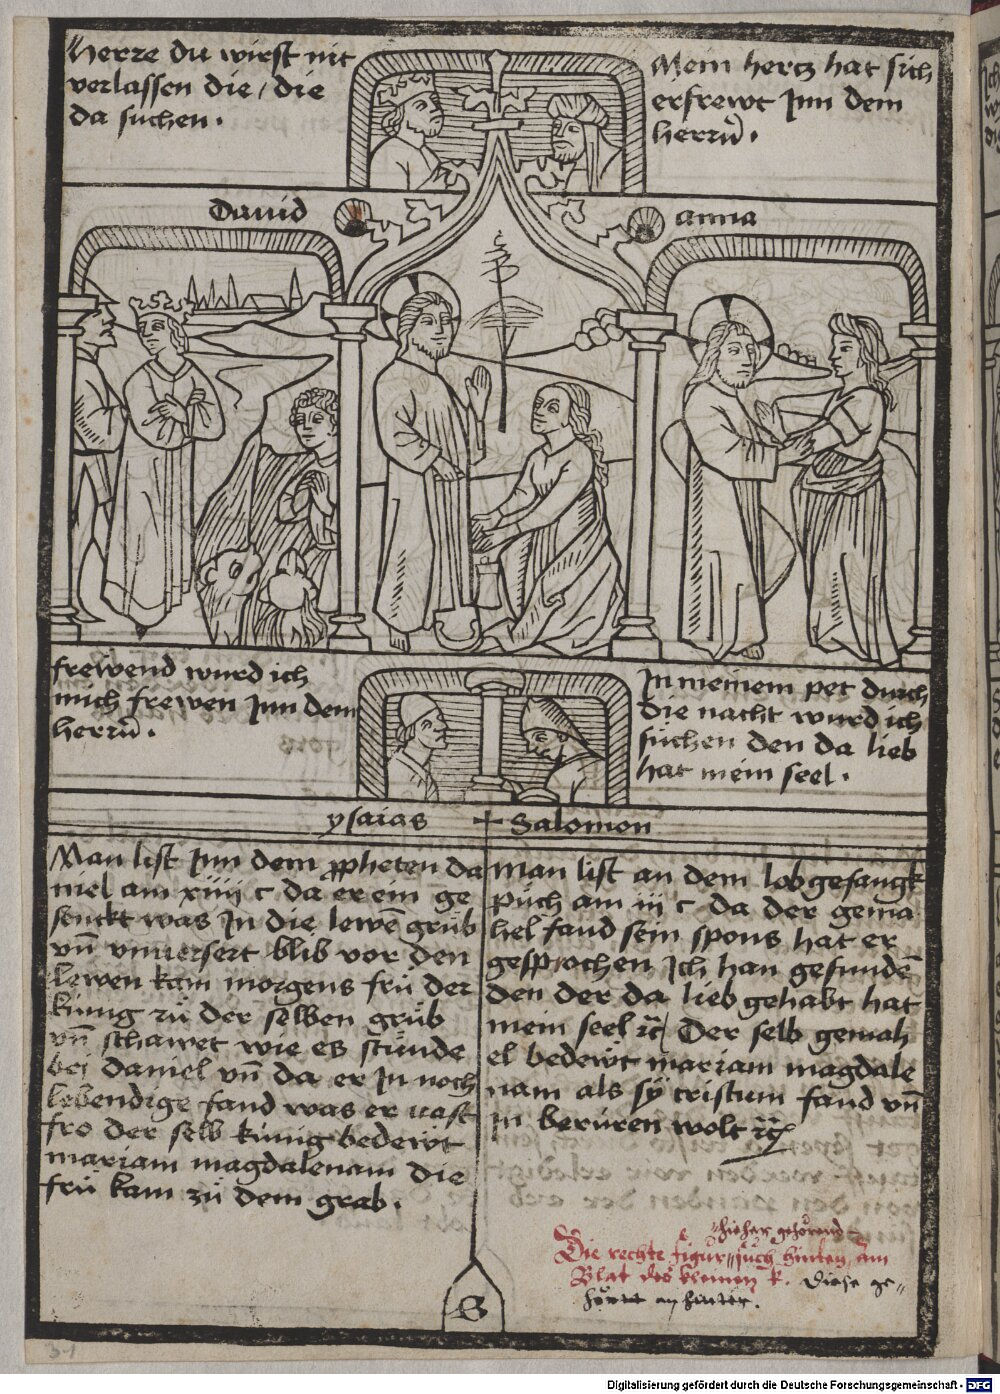 Herre du wirst nit
verlassen die / die
da suchen .
Mein hertz hat sich
erfrewt Jnn dem
herrn̄ .
Dauid
anna
frewend wurd ich
mich frewen Jnn dem
herrn̄ .
Jn meinem pet durch
die nacht wurd ich
suchen den da lieb
hat mein seel .
ysaias
Salomon
Man list Jnn dem ꝓpheten da
niel am xiiii c da er em ge
senckt was Jn die lewē grůb
vn̄ vnuersert blib vor den
lewen kam morgens frů der
kůnig zů der selben grůb
vn̄ schawet wie es stůnde
bei daniel vn̄ da er Jn noch
lebendige fand was er vast
fro der selb kůnig bedewt
mariam magdalenam die
frů kam zů dem grab .
Man list an dem lobgesangk
půch am iii c da der gema
hel fand sein spons hat er
gesprochen Jch han gefundē
den der da lieb gehabt hat
mein seel ꝛc̄ Der selb gemah
el bedewt mariam magdale
nam als sy cristum fand vn̄
jn berůren wolt ꝛc̄
hieher gehörend
Die rechte figur such hinten am
Blat des kleinen k. Diese ge-
hört
S
31
Digitalisierung gefördert durch die Deutsche Forschungsgemeinschaft - DFG